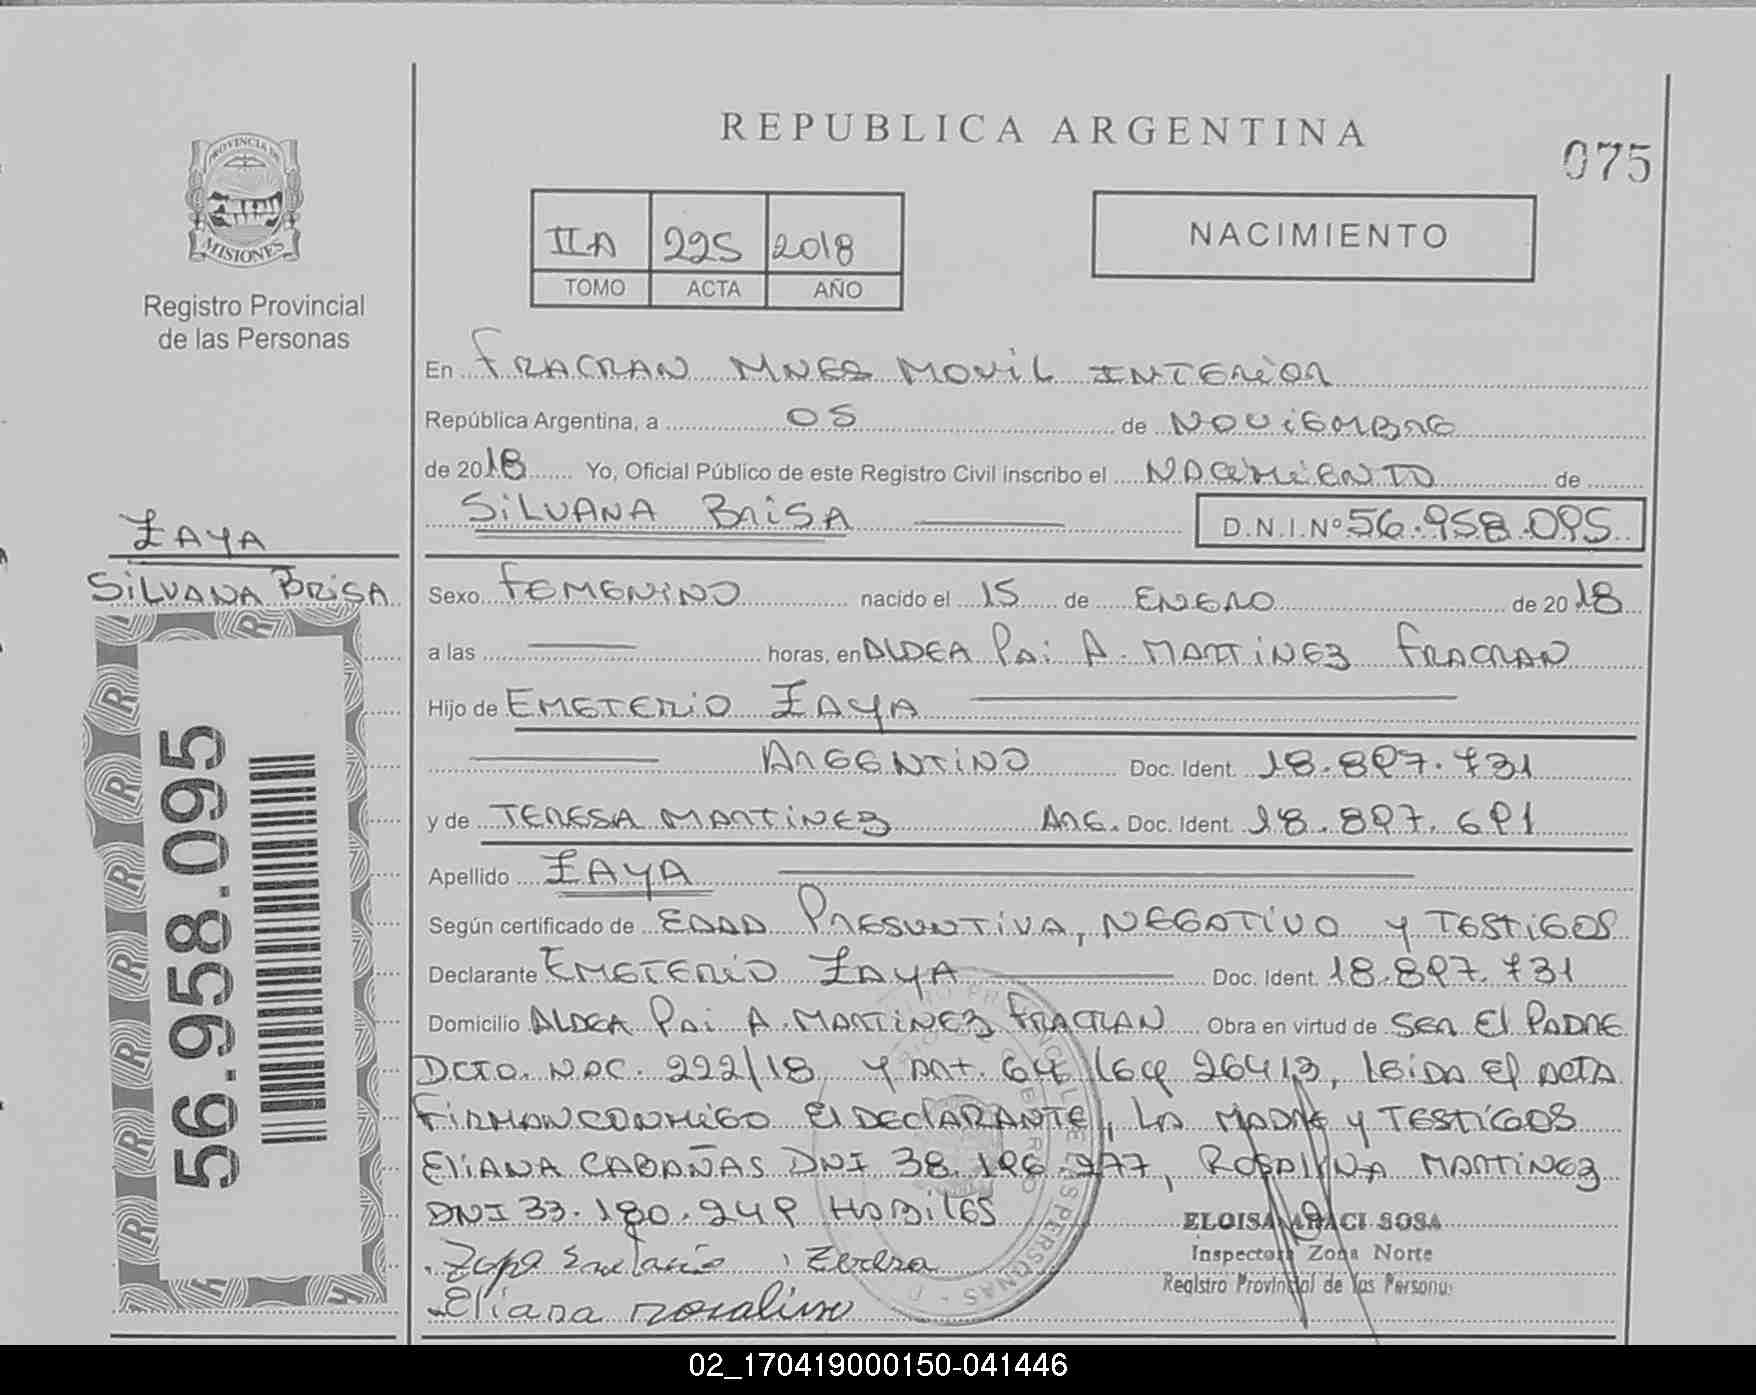 REPUBLICA ARGENTINA
075
PROVINCIA DE
MISIONES
Registro Provincial
de las Personas
IIA 225 2018
TOMO ACTA AÑO
NACIMIENTO
En FRACRAN MNES MOVIL INTERIOR
República Argentina, a 05 de NOVIEMBRE
de 2018 Yo, Oficial Público de este Registro Civil inscribo el NACIMIENTO de
SILVANA BRISA
D.N.I.Nº 56.958.095
ZAYA
SILVANA BRISA
56.958.095
Sexo FEMENINO nacido el 15 de ENERO de 2018
a las horas, en ALDEA Pai A. MARTINEZ FRACRAN
Hijo de EMETERIO ZAYA
ARGENTINO Doc. Ident. 18.897.731
y de TERESA MARTINEZ ARG. Doc. Ident. 18.897.691
Apellido ZAYA
Según certificado de EDAD PRESUNTIVA, NEGATIVO Y TESTIGOS
Declarante EMETERIO ZAYA Doc. Ident. 18.897.731
Domicilio ALDEA Pai A. MARTINEZ FRACRAN Obra en virtud de SER El PADRE
DCTO. NAC. 222/18 Y ART. 64 LEY 26413, LEIDA El ACTA
FIRMAN CONMIGO El DEClARANTE, LA MADRE Y TESTIGOS
ELIANA CABAÑAS DNI 38.196.277, ROSALINA MARTINEZ
DNI 33.180.249 HABILES
ELOISA ARACI SOSA
Inspectora Zona Norte
Registro Provincial de las Personas
Eliana rosalina
02_170419000150-041446